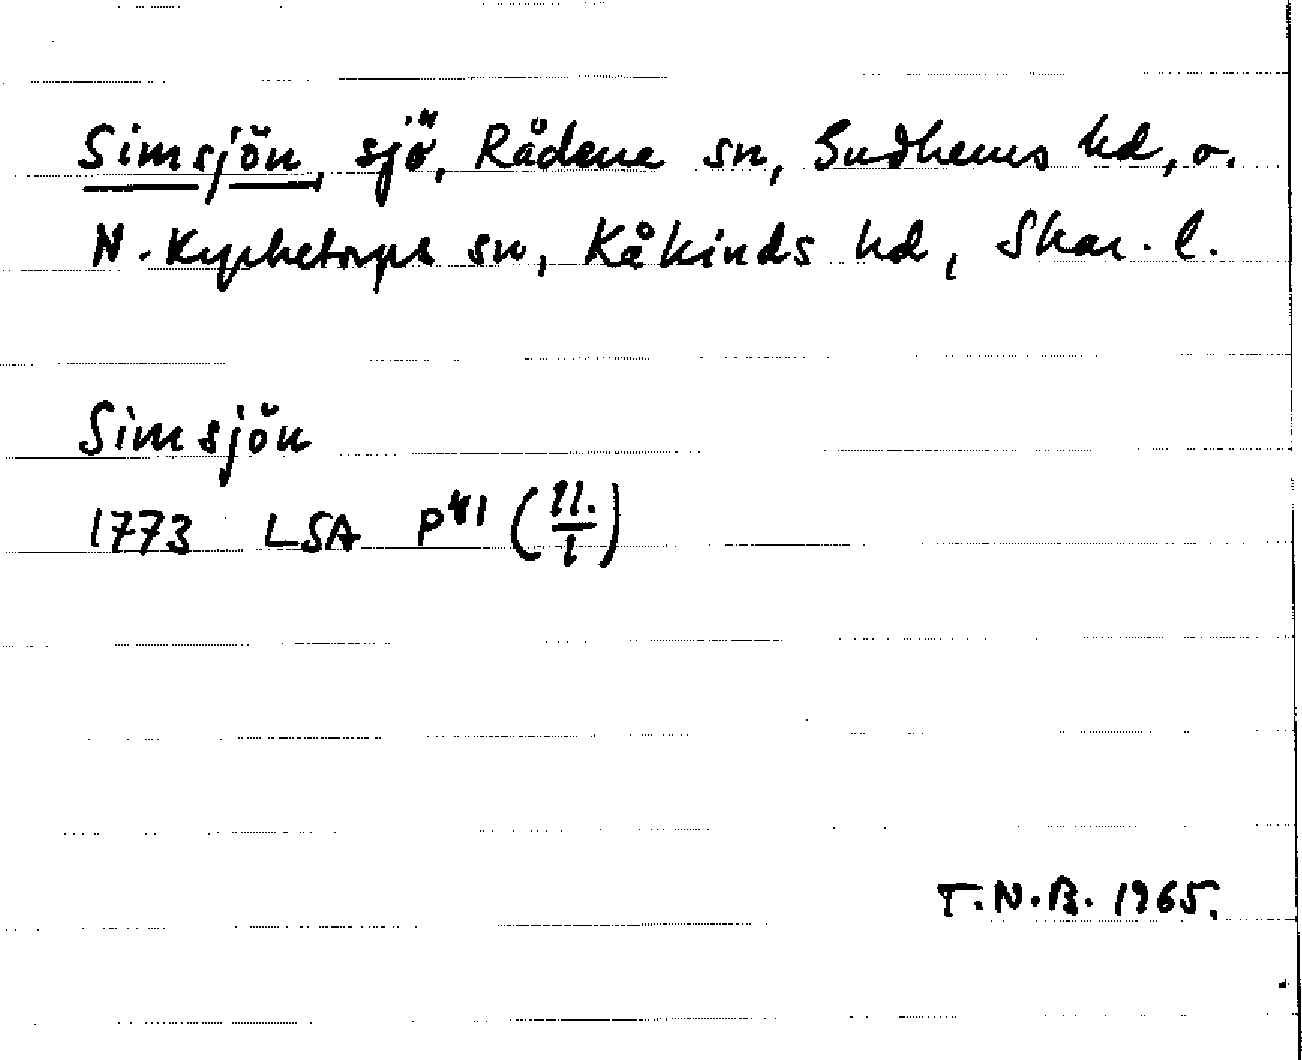 Simsjön, sjö, Rådene sn, Gudhems hd, o.
N. Kyrketorps sn, Kåkinds hd, Skar. l.
Simsjön
1773 LSA P 41 (11./1)
T.N.B. 1965.